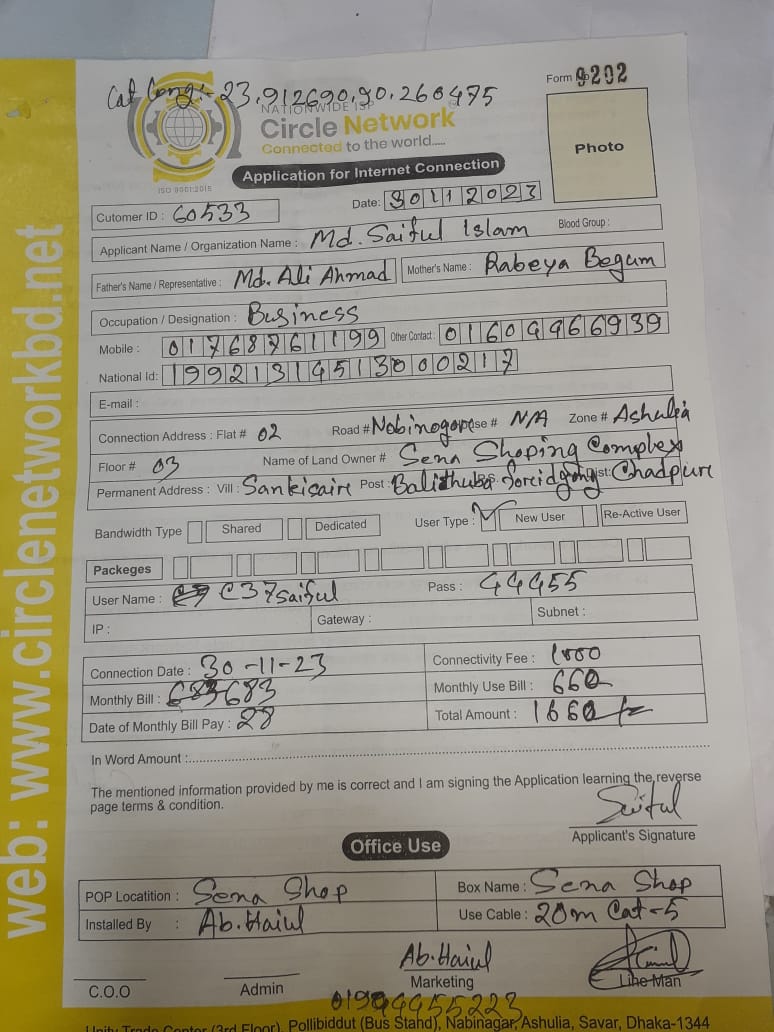 Form No 9202
Cat Long:- 23.912690,90.260475
NATIONWIDE ISP
Circle Network
Connected to the world.....
ISO 9001:2015
Application for Internet Connection
Photo
Date: 30112023
Cutomer ID : 60533
Applicant Name / Organization Name : Md. Saiful Islam Blood Group :
Father's Name / Representative : Md. Ali Ahmad Mother's Name : Rabeya Begum
Occupation / Designation : Business
Mobile : 01768761199 Other Contact : 01609966939
National Id: 19921314513000217
E-mail :
Connection Address : Flat # 02 Road # Nobinogor # N/A Zone # Ashulia
Floor # 03 Name of Land Owner # Sena Shoping Complex
Permanent Address : Vill : Sankisair Post : Balithuba Dist: Chadpure
Bandwidth Type Shared Dedicated User Type : New User Re-Active User
Packeges
User Name : C37saiful Pass : 44455
IP : Gateway : Subnet :
Connection Date : 30-11-23 Connectivity Fee : 1000
Monthly Bill : 683 Monthly Use Bill : 660
Date of Monthly Bill Pay : 28 Total Amount : 1660/=
In Word Amount :
The mentioned information provided by me is correct and I am signing the Application learning the reverse
page terms & condition.
Saiful
Applicant's Signature
Office Use
POP Locatition : Sena Shop Box Name : Sena Shop
Installed By : Ab. Haiul Use Cable : 20m Cat-5
Ab. Haiul
C.O.O Admin Marketing Line Man
Unity Trade Center (3rd Floor), Pollibiddut (Bus Stand), Nabinagar, Ashulia, Savar, Dhaka-1344
web: www.circlenetworkbd.net